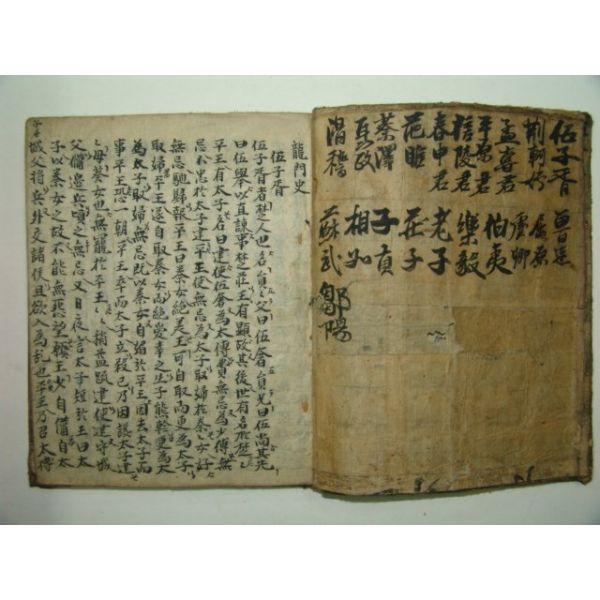 伍子胥 魯連
荊軻 屈原
孟嘗君 虞卿
平原君 伯夷
信陵君 樂毅
春申君 老子
范睢 莊子
蔡澤 子貢
聶政 相如
滑稽 蘇武 鄒陽
龍門史
伍子胥
伍子胥者楚人也名員〻父曰伍奢員兄曰伍尚其先
曰伍擧以直諫事楚莊王有顯故其後世有名於楚〻
平王有太子名曰建使伍奢為太傅費無忌為少傅無
忌不忠於太子建平王使無忌為太子取婦於秦〻女好
無忌馳歸報平王曰秦女絶美王可自取而更為太子
取婦平王遂自取秦女而絶愛幸之生子熊軫更為太
為太子取婦無忌既以秦女自媚於平王因去太子而
事平王恐一朝平王卒而太子立殺己乃因讒太子建
〻母蔡女也無寵於平王〻〻稍益疏建使建守城
父備邊兵頃之無忌又日夜言太子短於王曰太
子以秦女之故不能無怨望願王少自備自太
城父將兵外交諸侯且欲入為亂也平王乃召太傅